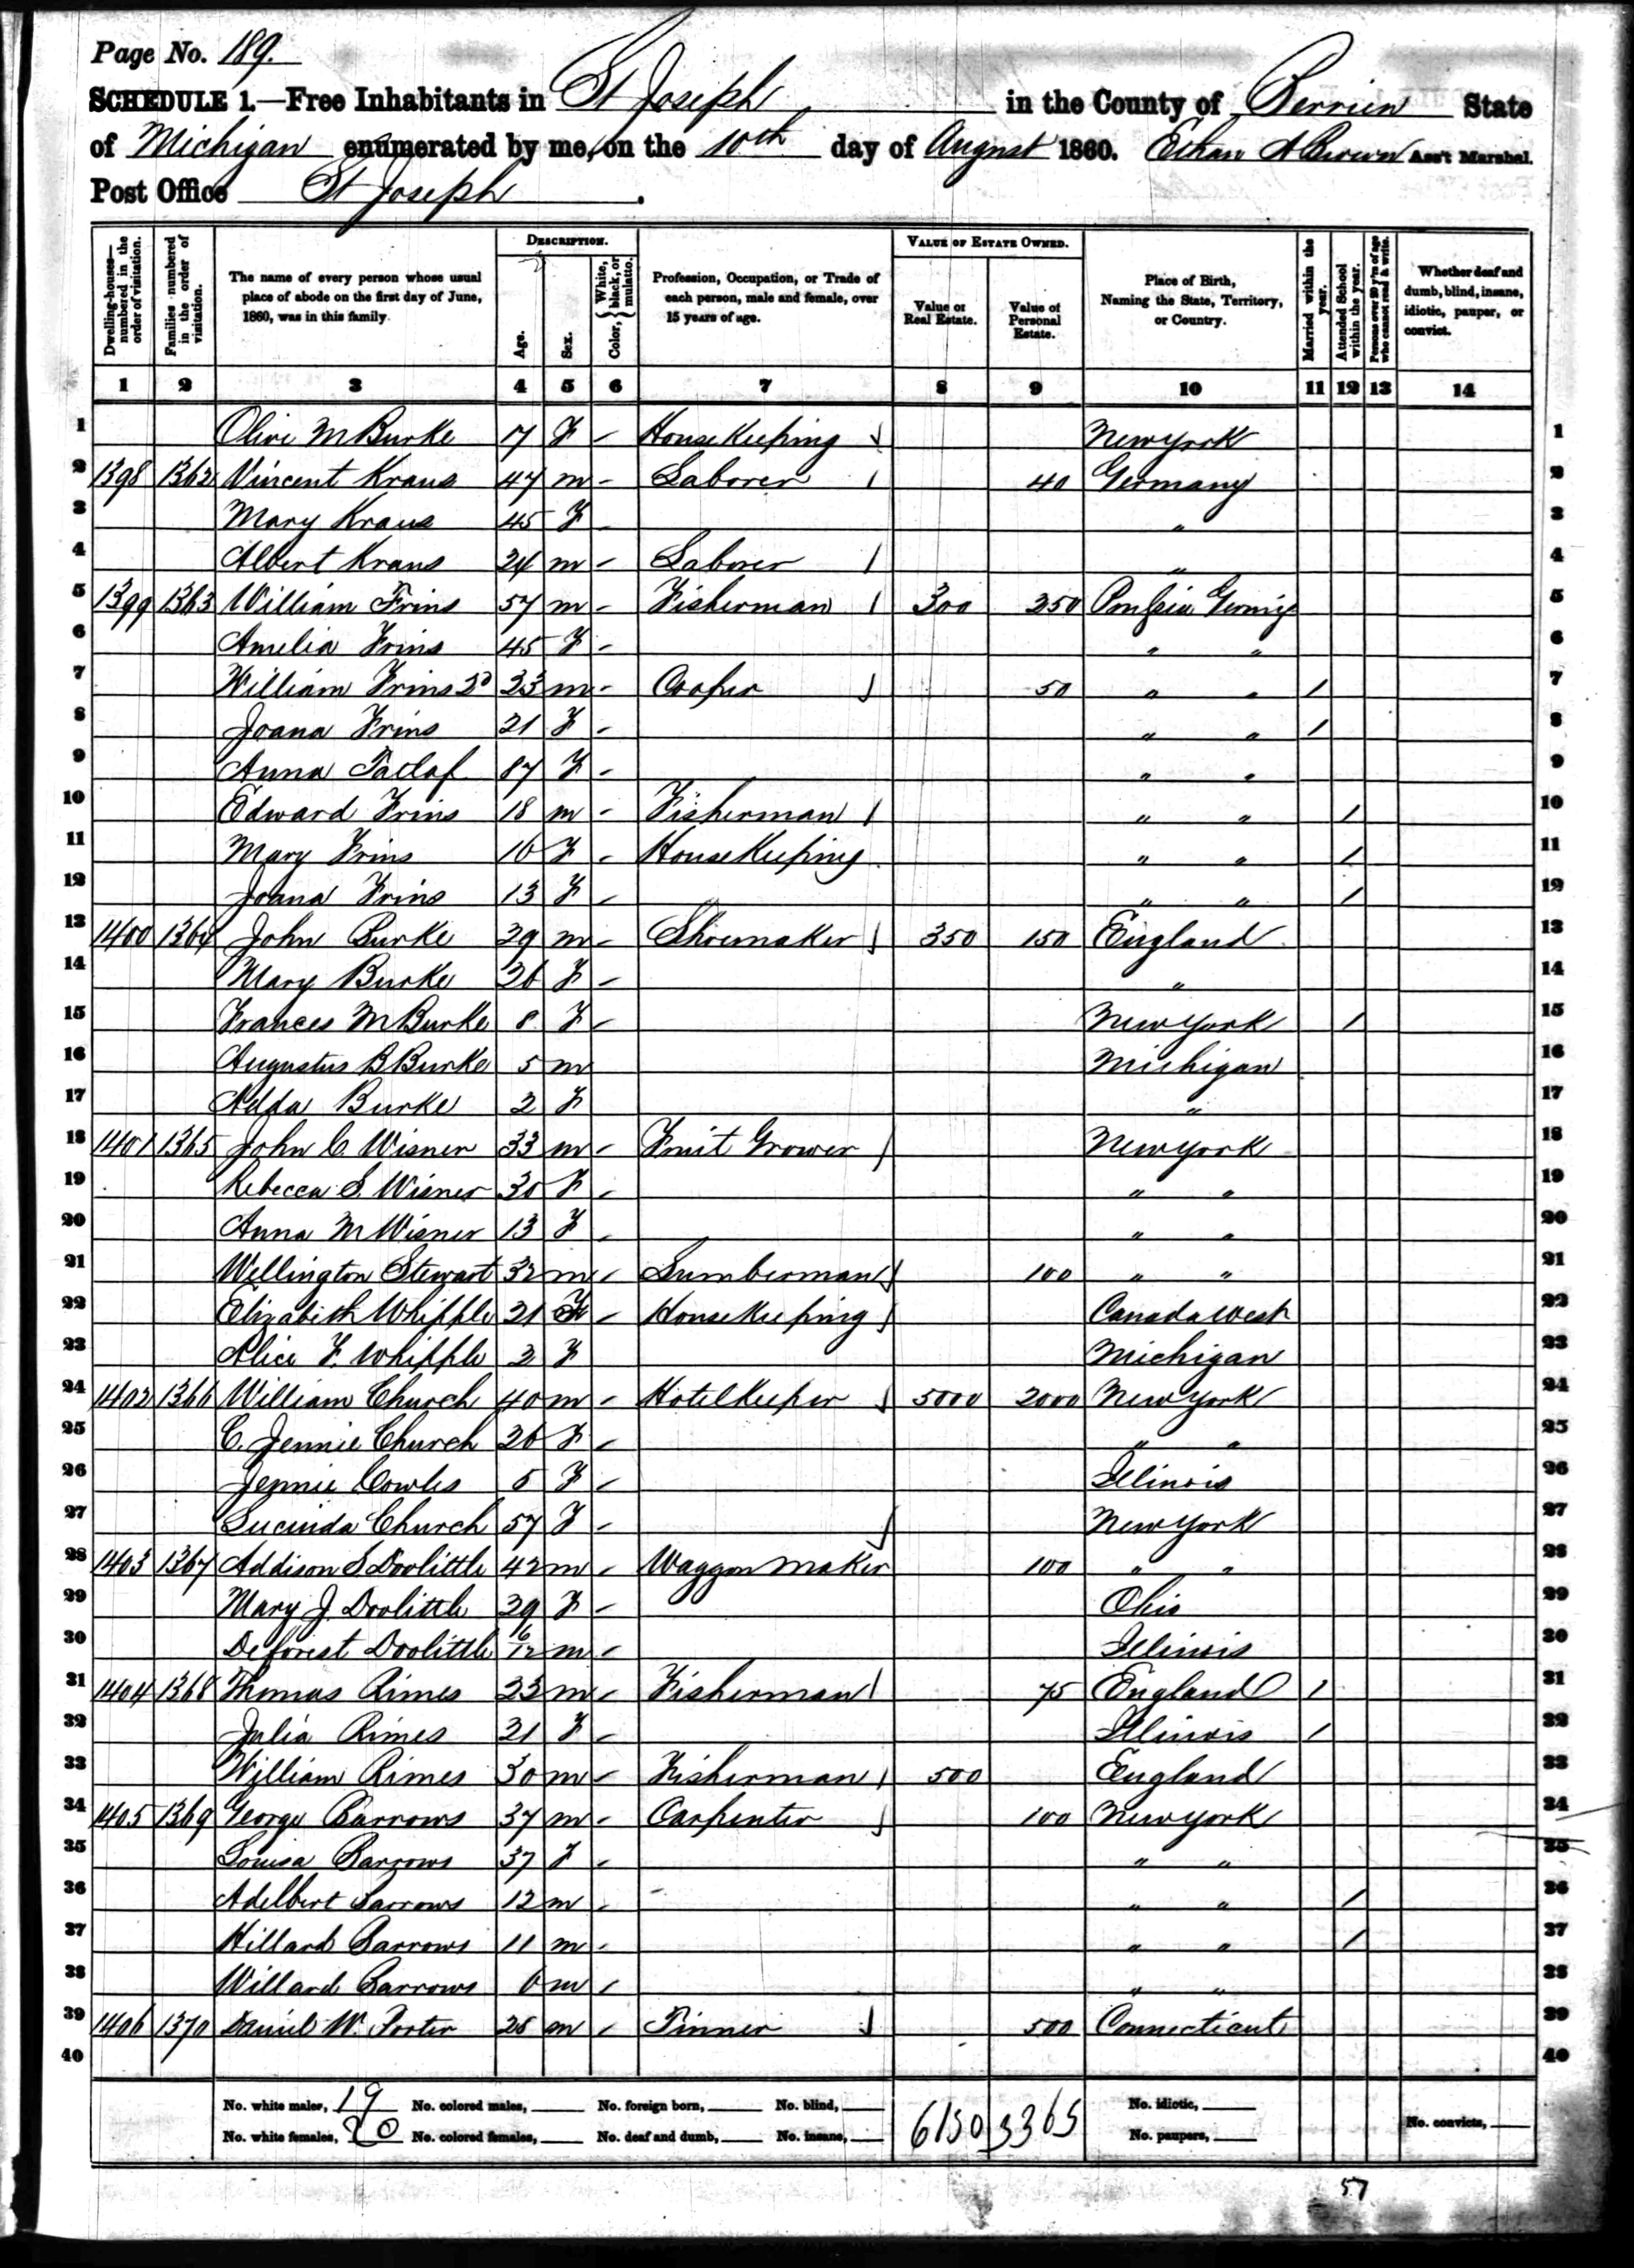 Page No. 189.
SCHEDULE 1.—Free Inhabitants in St Joseph in the County of Berrien State
of Michigan enumerated by me, on the 10th day of August 1860. Ethan A Brown Ass't Marshal.
Post Office St Joseph.
Dwelling-houses—numbered in the order of visitation. Families numbered in the order of visitation. The name of every person whose usual place of abode on the first day of June, 1860, was in this family. DESCRIPTION. Age. Sex. Color, { White, black, or mulatto. Profession, Occupation, or Trade of each person, male and female, over 15 years of age. VALUE OF ESTATE OWNED. Value of Real Estate. Value of Personal Estate. Place of Birth, Naming the State, Territory, or Country. Married within the year. Attended School within the year. Persons over 20 y'rs of age who cannot read & write. Whether deaf and dumb, blind, insane, idiotic, pauper, or convict.
1 2 3 4 5 6 7 8 9 10 11 12 13 14
1 Olive M Burke 17 F - House Keeping New York 1
2 1398 1362 Vincent Kraus 47 m - Laborer 40 Germany 2
3 Mary Kraus 45 F - " 3
4 Albert Kraus 24 m - Laborer " 4
5 1399 1363 William Frins 57 m - Fisherman 300 350 5
6 Amelia Frins 45 F - " " 6
7 William Frins 2d 23 m - Cooper 50 " " / 7
8 Joana Frins 21 F - " " / 8
9 Anna 87 F - " " 9
10 Edward Frins 18 m - Fisherman " " / 10
11 Mary Frins 16 F - House Keeping " " / 11
12 Joana Frins 13 F - " " / 12
13 1400 1364 John Burke 29 m - Shoemaker 350 150 England 13
14 Mary Burke 26 F - " 14
15 Frances M Burke 8 F - New York / 15
16 Augustus B Burke 5 m Michigan 16
17 Adda Burke 2 F " 17
18 1401 1365 John C. Wisner 33 m - Fruit Grower New York 18
19 Rebecca S. Wisner 30 F - " " 19
20 Anna M Wisner 13 F - " " 20
21 Wellington Stewart 32 m - Lumberman 100 " " 21
22 Elizabeth Whipple 21 F - House Keeping Canada West 22
23 Alice F. Whipple 2 F Michigan 23
24 1402 1366 William Church 40 m - Hotel Keeper 5000 2000 New York 24
25 C. Jennie Church 26 F - " " 25
26 Jennie Cowles 5 F - Illinois 26
27 Lucinda Church 57 F - New York 27
28 1403 1367 Addison S Doolittle 42 m - Waggon Maker 100 " " 28
29 Mary J. Doolittle 29 F - Ohio 29
30 Deforest Doolittle 6/12 m - Illinois 30
31 1404 1368 Thomas Rimes 23 m - Fisherman 75 England / 31
32 Julia Rimes 21 F - Illinois / 32
33 William Rimes 30 m - Fisherman 500 England 33
34 1405 1369 George Barrows 37 m - Carpenter 100 New York 34
35 Louisa Barrows 37 F - " " 35
36 Adelbert Barrows 12 m - " " / 36
37 Hillard Barrows 11 m - " " / 37
38 Willard Barrows 6 m - " " 38
39 1406 1370 Daniel W. Porter 28 m - Tinner 500 Connecticut 39
40 40
No. white males, 19 No. colored males, No. foreign born, No. blind, 6150 3365 No. idiotic, No. convicts,
No. white females, 20 No. colored females, No. deaf and dumb, No. insane, No. paupers,
57